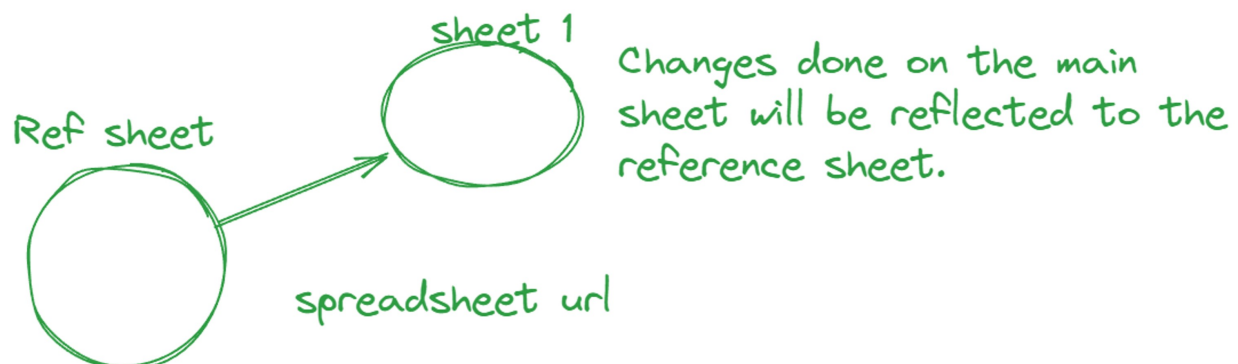 sheet 1
Changes done on the main
sheet will be reflected to the
reference sheet.
Ref sheet
spreadsheet url